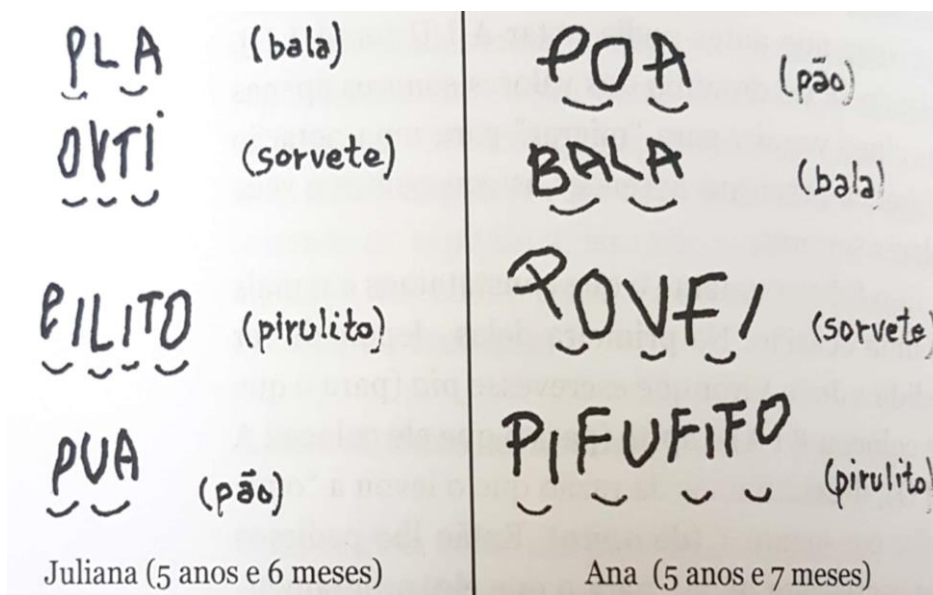 PLA (bala)
OVTI (sorvete)
PILITO (pirulito)
PUA (pão)
Juliana (5 anos e 6 meses)
POA (pão)
BALA (bala)
POVEI (sorvete)
PIFUFITO (pirulito)
Ana (5 anos e 7 meses)